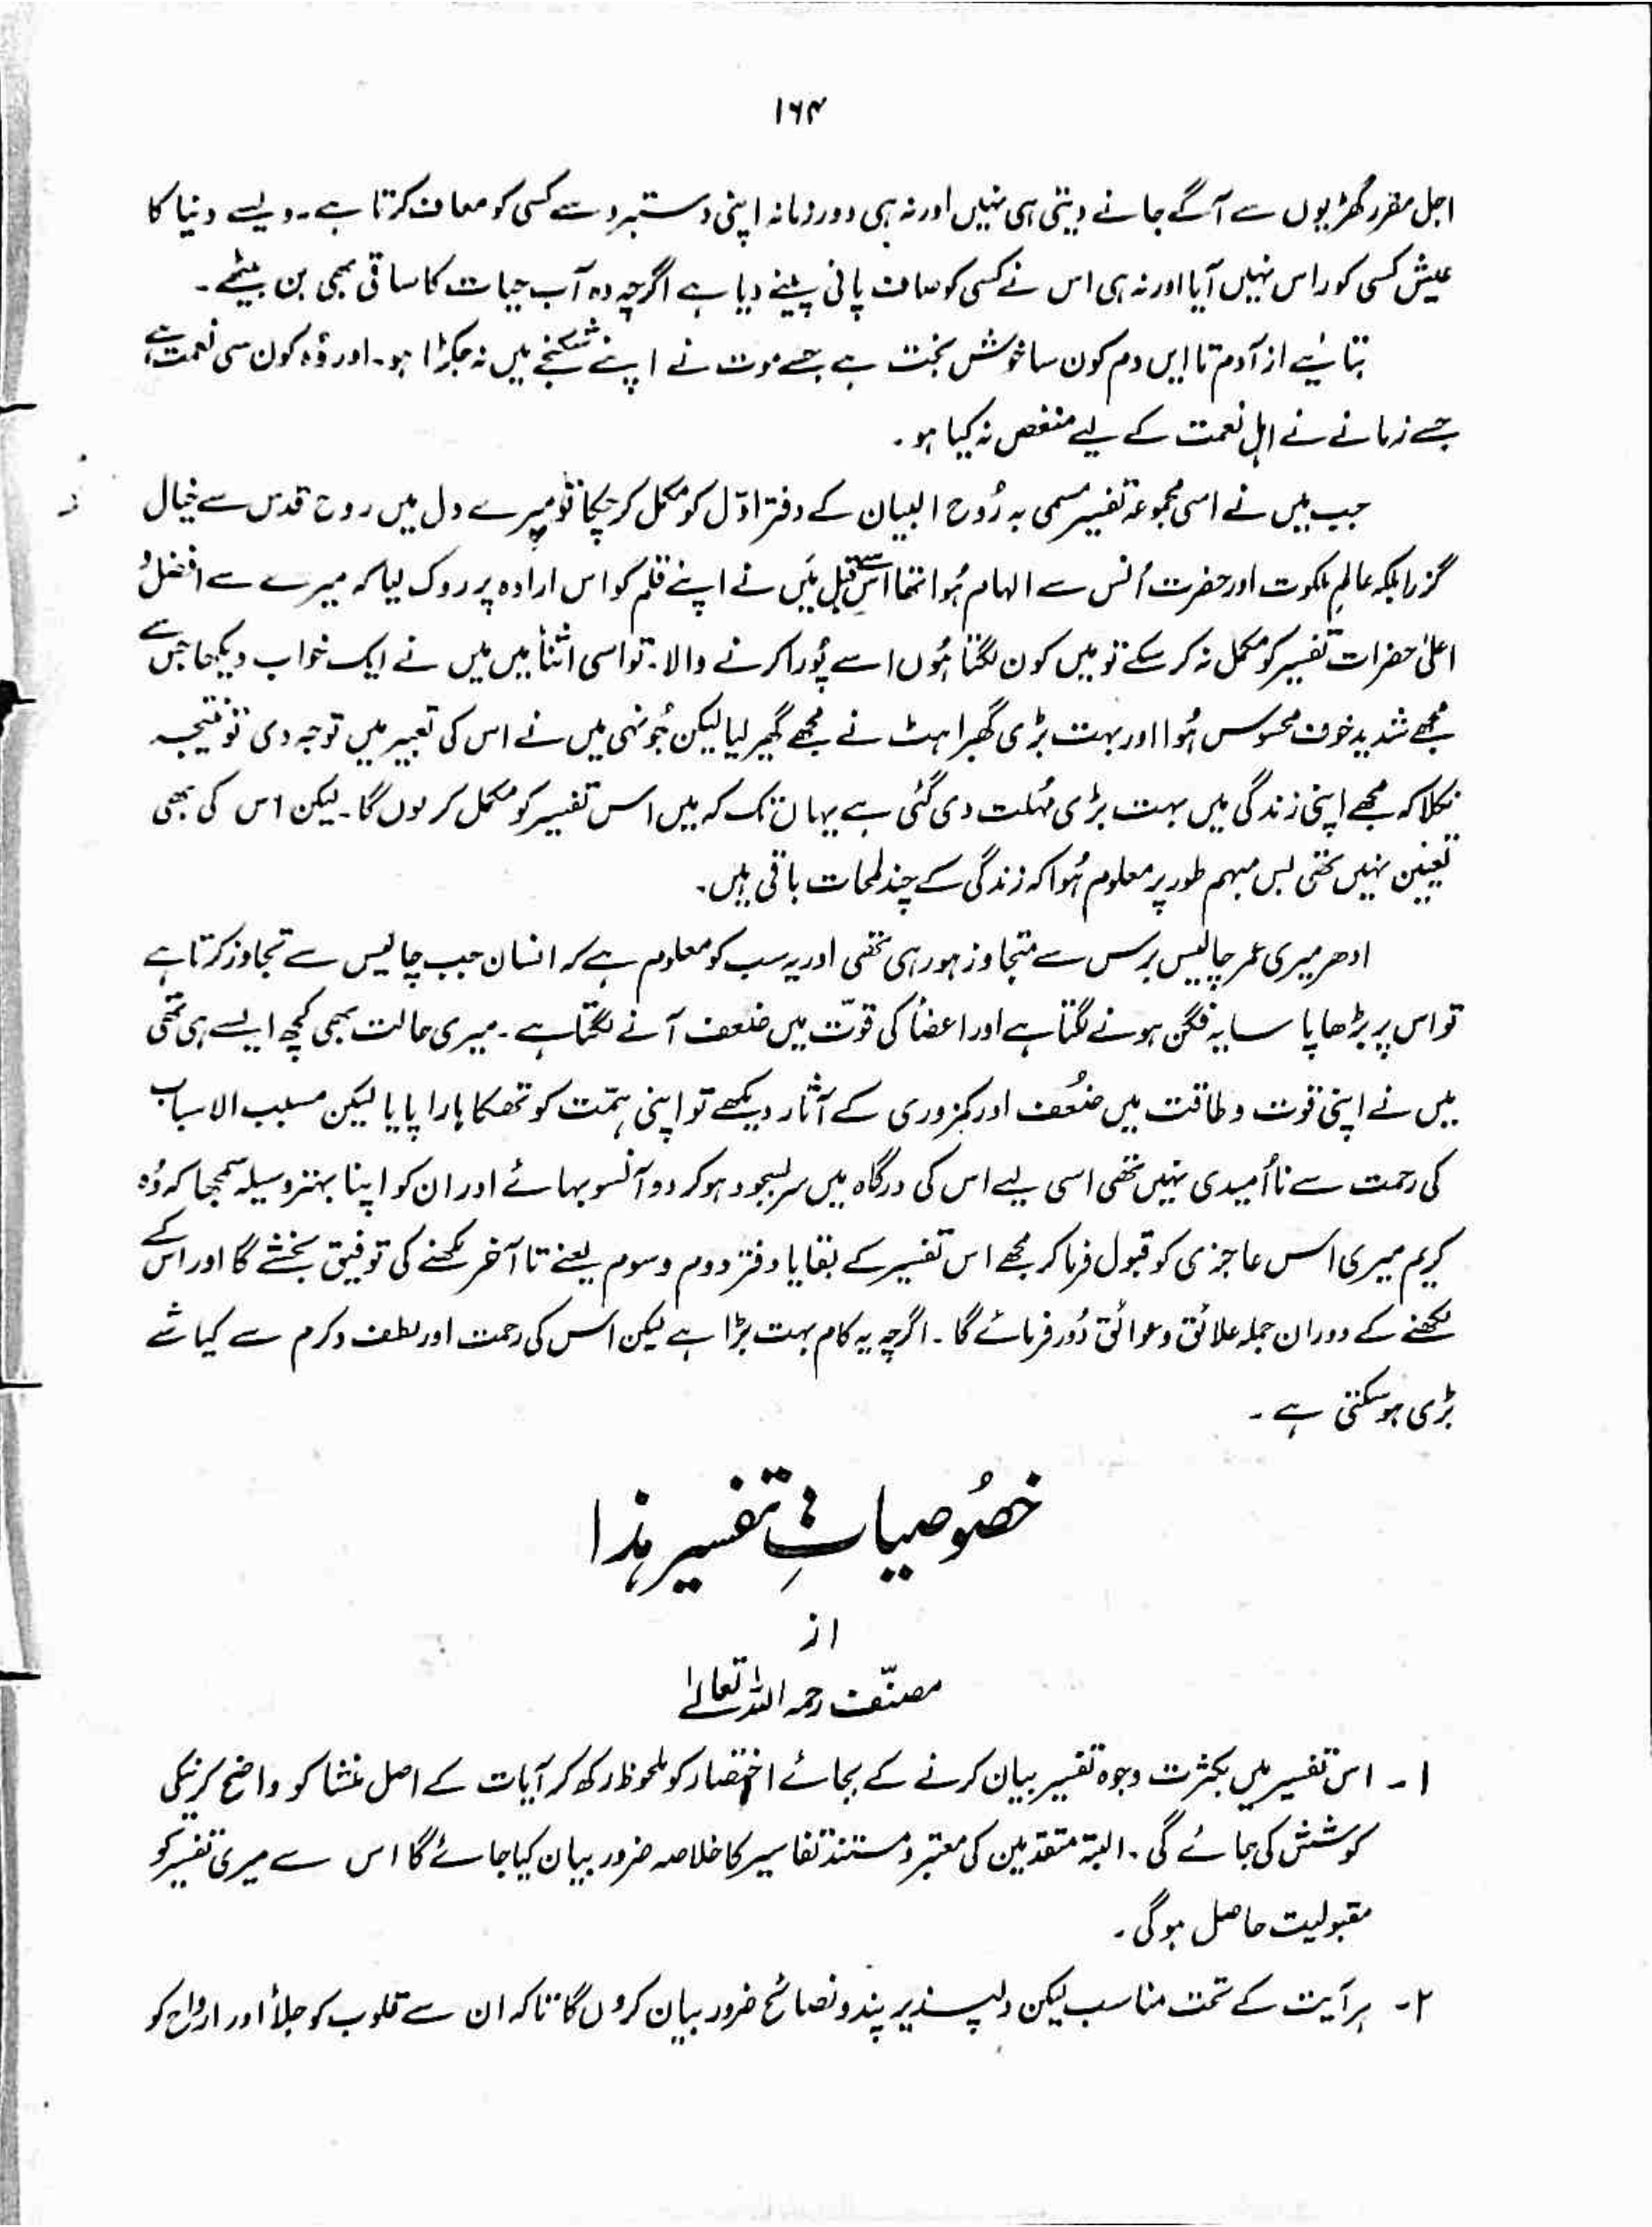 ۱۶۴
اجل مقرر گھڑیوں سے آگے جانے دیتی ہی نہیں اور نہ ہی دور زمانہ اپنی دستبرد سے کسی کو معاف کرتا ہے۔ ویسے دنیا کا
عیش کسی کو راس نہیں آیا اور نہ ہی اس نے کسی کو صاف پانی پینے دیا ہے اگرچہ وہ آب حیات کا ساقی بھی بن بیٹھے۔
بتائیے از آدم تا ایں دم کون سا خوش بخت ہے جسے موت نے اپنے شکنجے میں نہ جکڑا ہو۔ اور وُہ کون سی نعمت ہے
جسے زمانے نے اہلِ نعمت کے لیے منغص نہ کیا ہو۔
جب میں نے اسی مجموعہ تفسیر مسمی بہ رُوح البیان کے دفتر اوّل کو مکمل کر چکا تو میرے دل میں روح قدس سے خیال
گزرا بلکہ عالمِ ملکوت اور حضرت اُنس سے الہام ہُوا تھا اس سے قبل میَں نے اپنے قلم کو اس ارادہ پر روک لیا کہ میرے سے افضل و
اعلیٰ حضرات تفسیر کو مکمل نہ کر سکے تو میں کون لگتا ہُوں اسے پُورا کرنے والا۔ تو اسی اثنا میں میں نے ایک خواب دیکھا جس سے
مجھے شدید خوف محسوس ہُوا اور بہت بڑی گھبراہٹ نے مجھے گھیر لیا لیکن جُونہی میں نے اس کی تعبیر میں توجہ دی تو نتیجہ
نکلا کہ مجھے اپنی زندگی میں بہت بڑی مُہلت دی گئی ہے یہاں تک کہ میں اس تفسیر کو مکمل کر لوں گا۔ لیکن اس کی بھی
تعیین نہیں تھی بس مبہم طور پر معلوم ہُوا کہ زندگی کے چند لمحات باقی ہیں۔
ادھر میری عمر چالیس برس سے متجاوز ہو رہی تھی اور یہ سب کو معلوم ہے کہ انسان جب چالیس سے تجاوز کرتا ہے
تو اس پر بڑھاپا سایہ فگن ہونے لگتا ہے اور اعضأ کی قوّت میں ضعف آنے لگتا ہے۔ میری حالت بھی کچھ ایسے ہی تھی
میں نے اپنی قوت و طاقت میں ضُعف اور کمزوری کے آثار دیکھے تو اپنی ہمّت کو تھکا ہارا پایا لیکن مسبب الاسباب
کی رحمت سے نا اُمیدی نہیں تھی اسی لیے اس کی درگاہ میں سر بسجود ہو کر دو آنسو بہائے اور ان کو اپنا بہتر وسیلہ سمجھا کہ وُہ
کریم میری اس عاجزی کو قبول فرما کر مجھے اس تفسیر کے بقایا دفتر دوم و سوم یعنے تا آخر لکھنے کی توفیق بخشے گا اور اس کے
لکھنے کے دوران جملہ علائق و عوائق دُور فرمائے گا۔ اگرچہ یہ کام بہت بڑا ہے لیکن اس کی رحمت اور لطف و کرم سے کیا شے
بڑی ہو سکتی ہے۔
خصُوصیاتِ تفسیر ہٰذا
از
مصنّف رحمہ اللہ تعالےٰ
۱۔ اس تفسیر میں بکثرت وجوہ تفسیر بیان کرنے کے بجائے اختصار کو ملحوظ رکھ کر آیات کے اصل منشا کو واضح کرنیکی
کوشش کی جائے گی۔ البتہ متقدمین کی معتبر و مستند تفاسیر کا خلاصہ ضرور بیان کیا جائے گا اس سے میری تفسیر کو
مقبولیت حاصل ہو گی۔
۲۔ ہر آیت کے تحت مناسب لیکن دلپسذیر پند و نصائح ضرور بیان کروں گا تاکہ ان سے قلوب کو جلأ اور ارواح کو